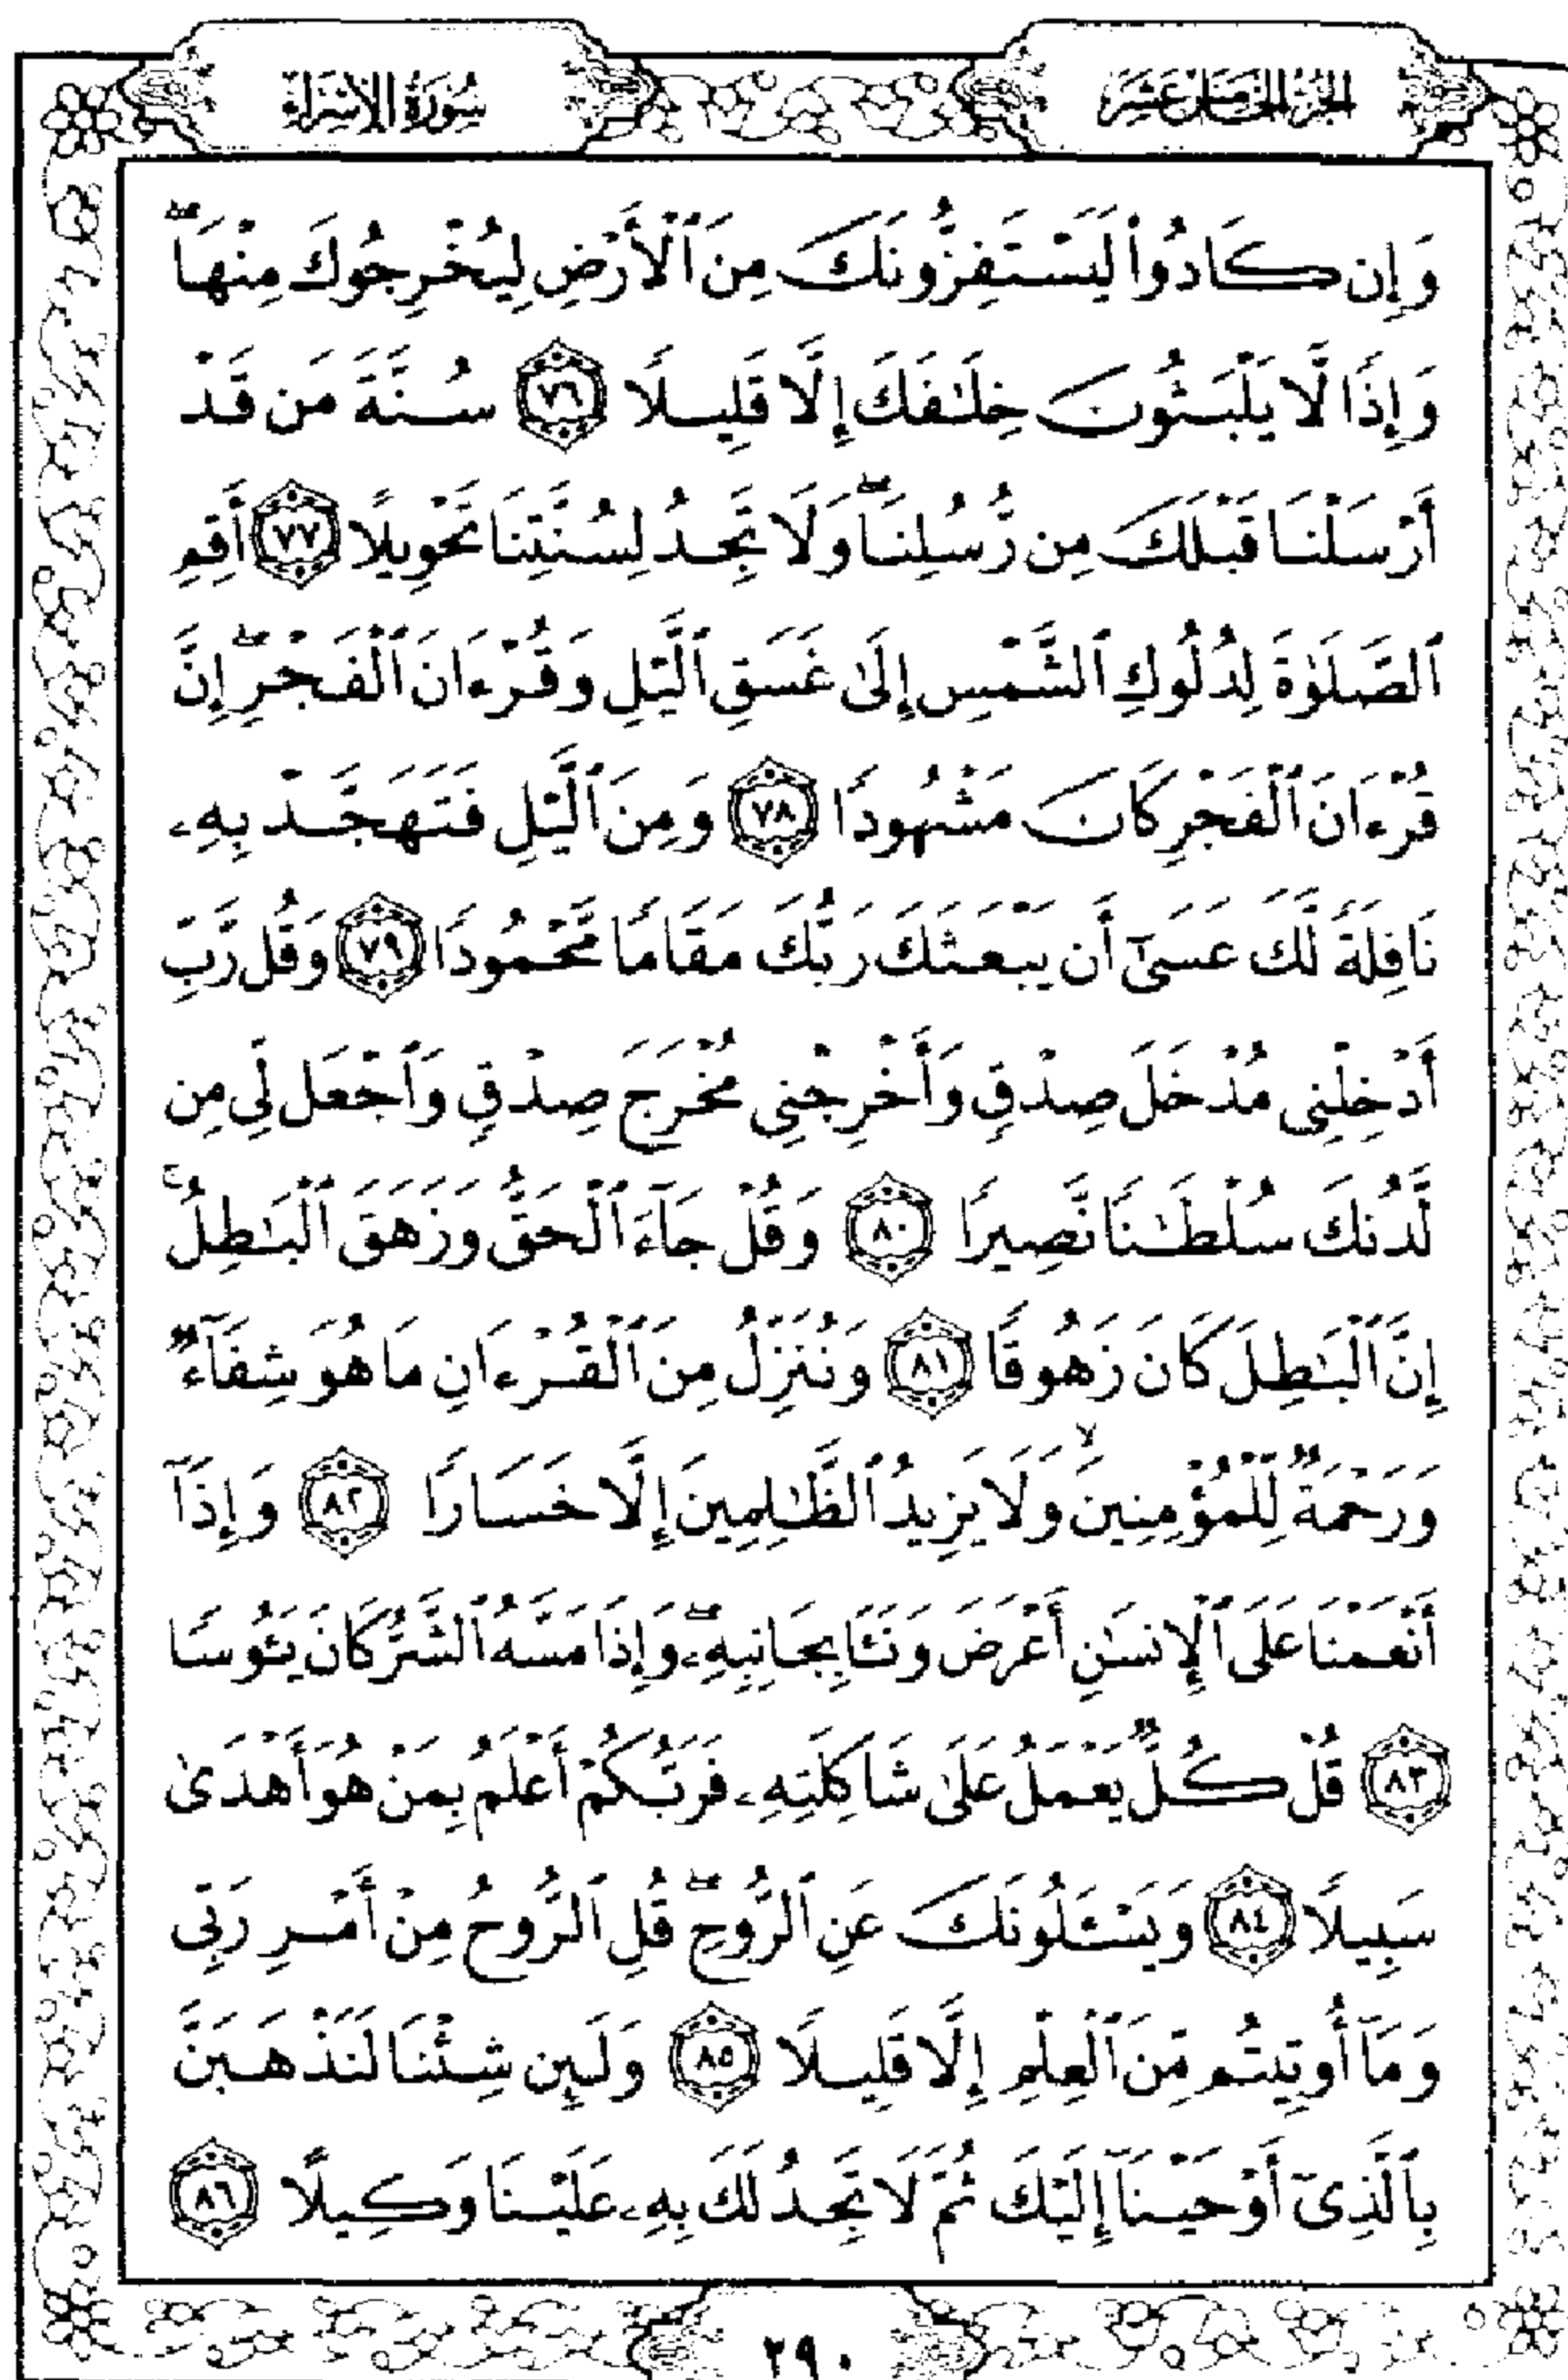 الجزء الخامس عشر
سورة الإسراء
وَإِن كَادُوا۟ لَيَسْتَفِزُّونَكَ مِنَ ٱلْأَرْضِ لِيُخْرِجُوكَ مِنْهَاۖ
وَإِذًا لَّا يَلْبَثُونَ خِلَٰفَكَ إِلَّا قَلِيلًا ٧٦ سُنَّةَ مَن قَدْ
أَرْسَلْنَا قَبْلَكَ مِن رُّسُلِنَاۖ وَلَا تَجِدُ لِسُنَّتِنَا تَحْوِيلًا ٧٧ أَقِمِ
ٱلصَّلَوٰةَ لِدُلُوكِ ٱلشَّمْسِ إِلَىٰ غَسَقِ ٱلَّيْلِ وَقُرْءَانَ ٱلْفَجْرِۖ إِنَّ
قُرْءَانَ ٱلْفَجْرِ كَانَ مَشْهُودًا ٧٨ وَمِنَ ٱلَّيْلِ فَتَهَجَّدْ بِهِۦ
نَافِلَةً لَّكَ عَسَىٰٓ أَن يَبْعَثَكَ رَبُّكَ مَقَامًا مَّحْمُودًا ٧٩ وَقُل رَّبِّ
أَدْخِلْنِى مُدْخَلَ صِدْقٍ وَأَخْرِجْنِى مُخْرَجَ صِدْقٍ وَٱجْعَل لِّى مِن
لَّدُنكَ سُلْطَٰنًا نَّصِيرًا ٨٠ وَقُلْ جَآءَ ٱلْحَقُّ وَزَهَقَ ٱلْبَٰطِلُۚ
إِنَّ ٱلْبَٰطِلَ كَانَ زَهُوقًا ٨١ وَنُنَزِّلُ مِنَ ٱلْقُرْءَانِ مَا هُوَ شِفَآءٌ
وَرَحْمَةٌ لِّلْمُؤْمِنِينَۙ وَلَا يَزِيدُ ٱلظَّٰلِمِينَ إِلَّا خَسَارًا ٨٢ وَإِذَآ
أَنْعَمْنَا عَلَى ٱلْإِنسَٰنِ أَعْرَضَ وَنَـَٔا بِجَانِبِهِۦۖ وَإِذَا مَسَّهُ ٱلشَّرُّ كَانَ يَـُٔوسًا
٨٣ قُلْ كُلٌّ يَعْمَلُ عَلَىٰ شَاكِلَتِهِۦ فَرَبُّكُمْ أَعْلَمُ بِمَنْ هُوَ أَهْدَىٰ
سَبِيلًا ٨٤ وَيَسْـَٔلُونَكَ عَنِ ٱلرُّوحِۖ قُلِ ٱلرُّوحُ مِنْ أَمْرِ رَبِّى
وَمَآ أُوتِيتُم مِّنَ ٱلْعِلْمِ إِلَّا قَلِيلًا ٨٥ وَلَئِن شِئْنَا لَنَذْهَبَنَّ
بِٱلَّذِىٓ أَوْحَيْنَآ إِلَيْكَ ثُمَّ لَا تَجِدُ لَكَ بِهِۦ عَلَيْنَا وَكِيلًا ٨٦
٢٩٠